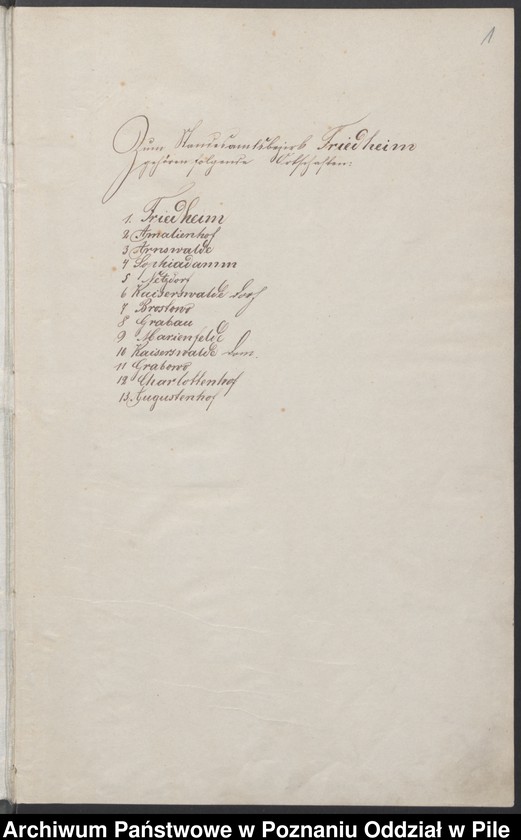 1
Zum Standesamtsbezirk Friedheim
gehören folgende Ortschaften:
1. Friedheim
2 Amalienhof
3 Arnswalde
4 Sophiadamm
5 Netzdorf
6 Kaiserswalde Dorf
7 Brostowo
8 Grabau
9 Marienfelde
10 Kaiserswalde Dom.
11 Grabowo
12 Charlottenhof
13. Augustenhof
Archiwum Państwowe w Poznaniu Oddział w Pile